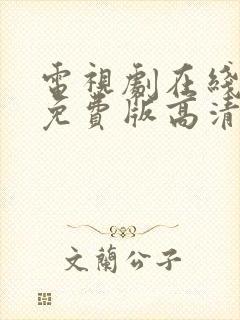 電視劇在綫
免費版高清
文蘭公子